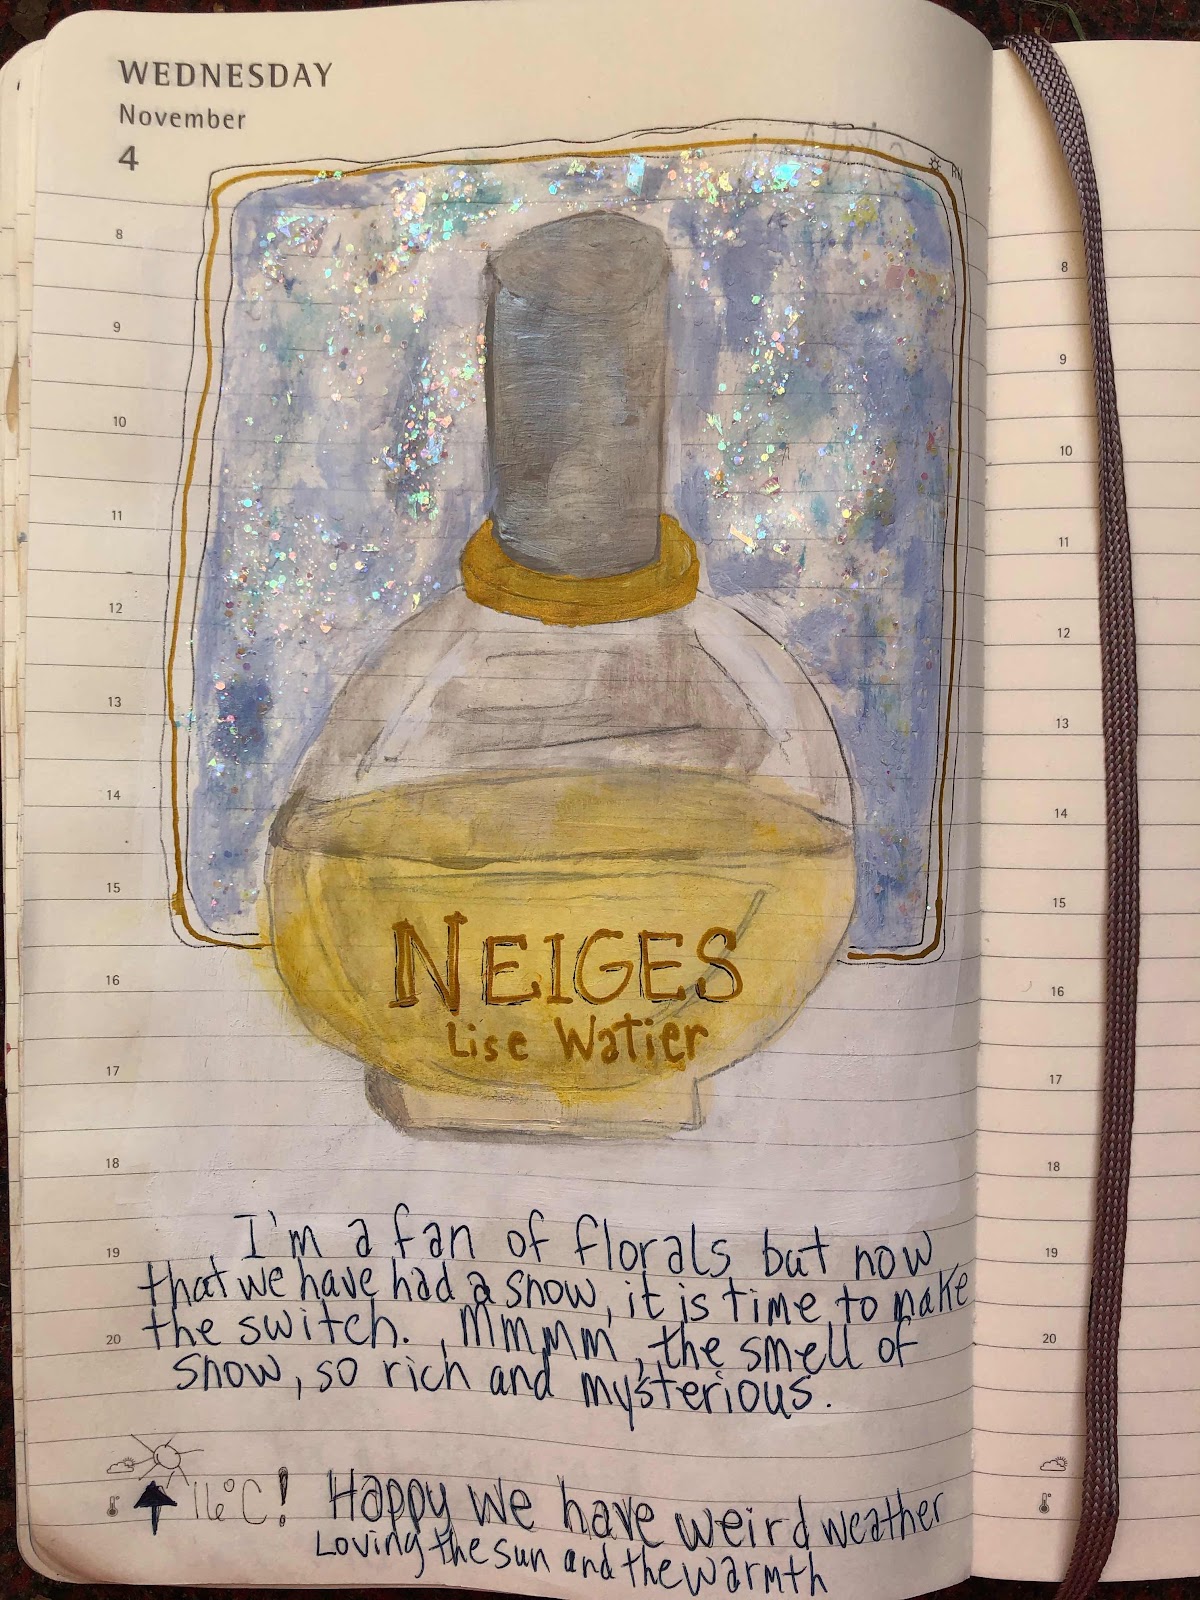 WEDNESDAY
November
4
8
9
10
11
12
13
14
15
16
17
18
19
20
NEIGES
Lise Watier
I'm a fan of florals but now
that we have had a snow, it is time to make
the switch. Mmmm, the smell of
snow, so rich and mysterious.
16°C! Happy we have weird weather
Loving the sun and the warmth
8
9
10
11
12
13
14
15
16
17
18
19
20